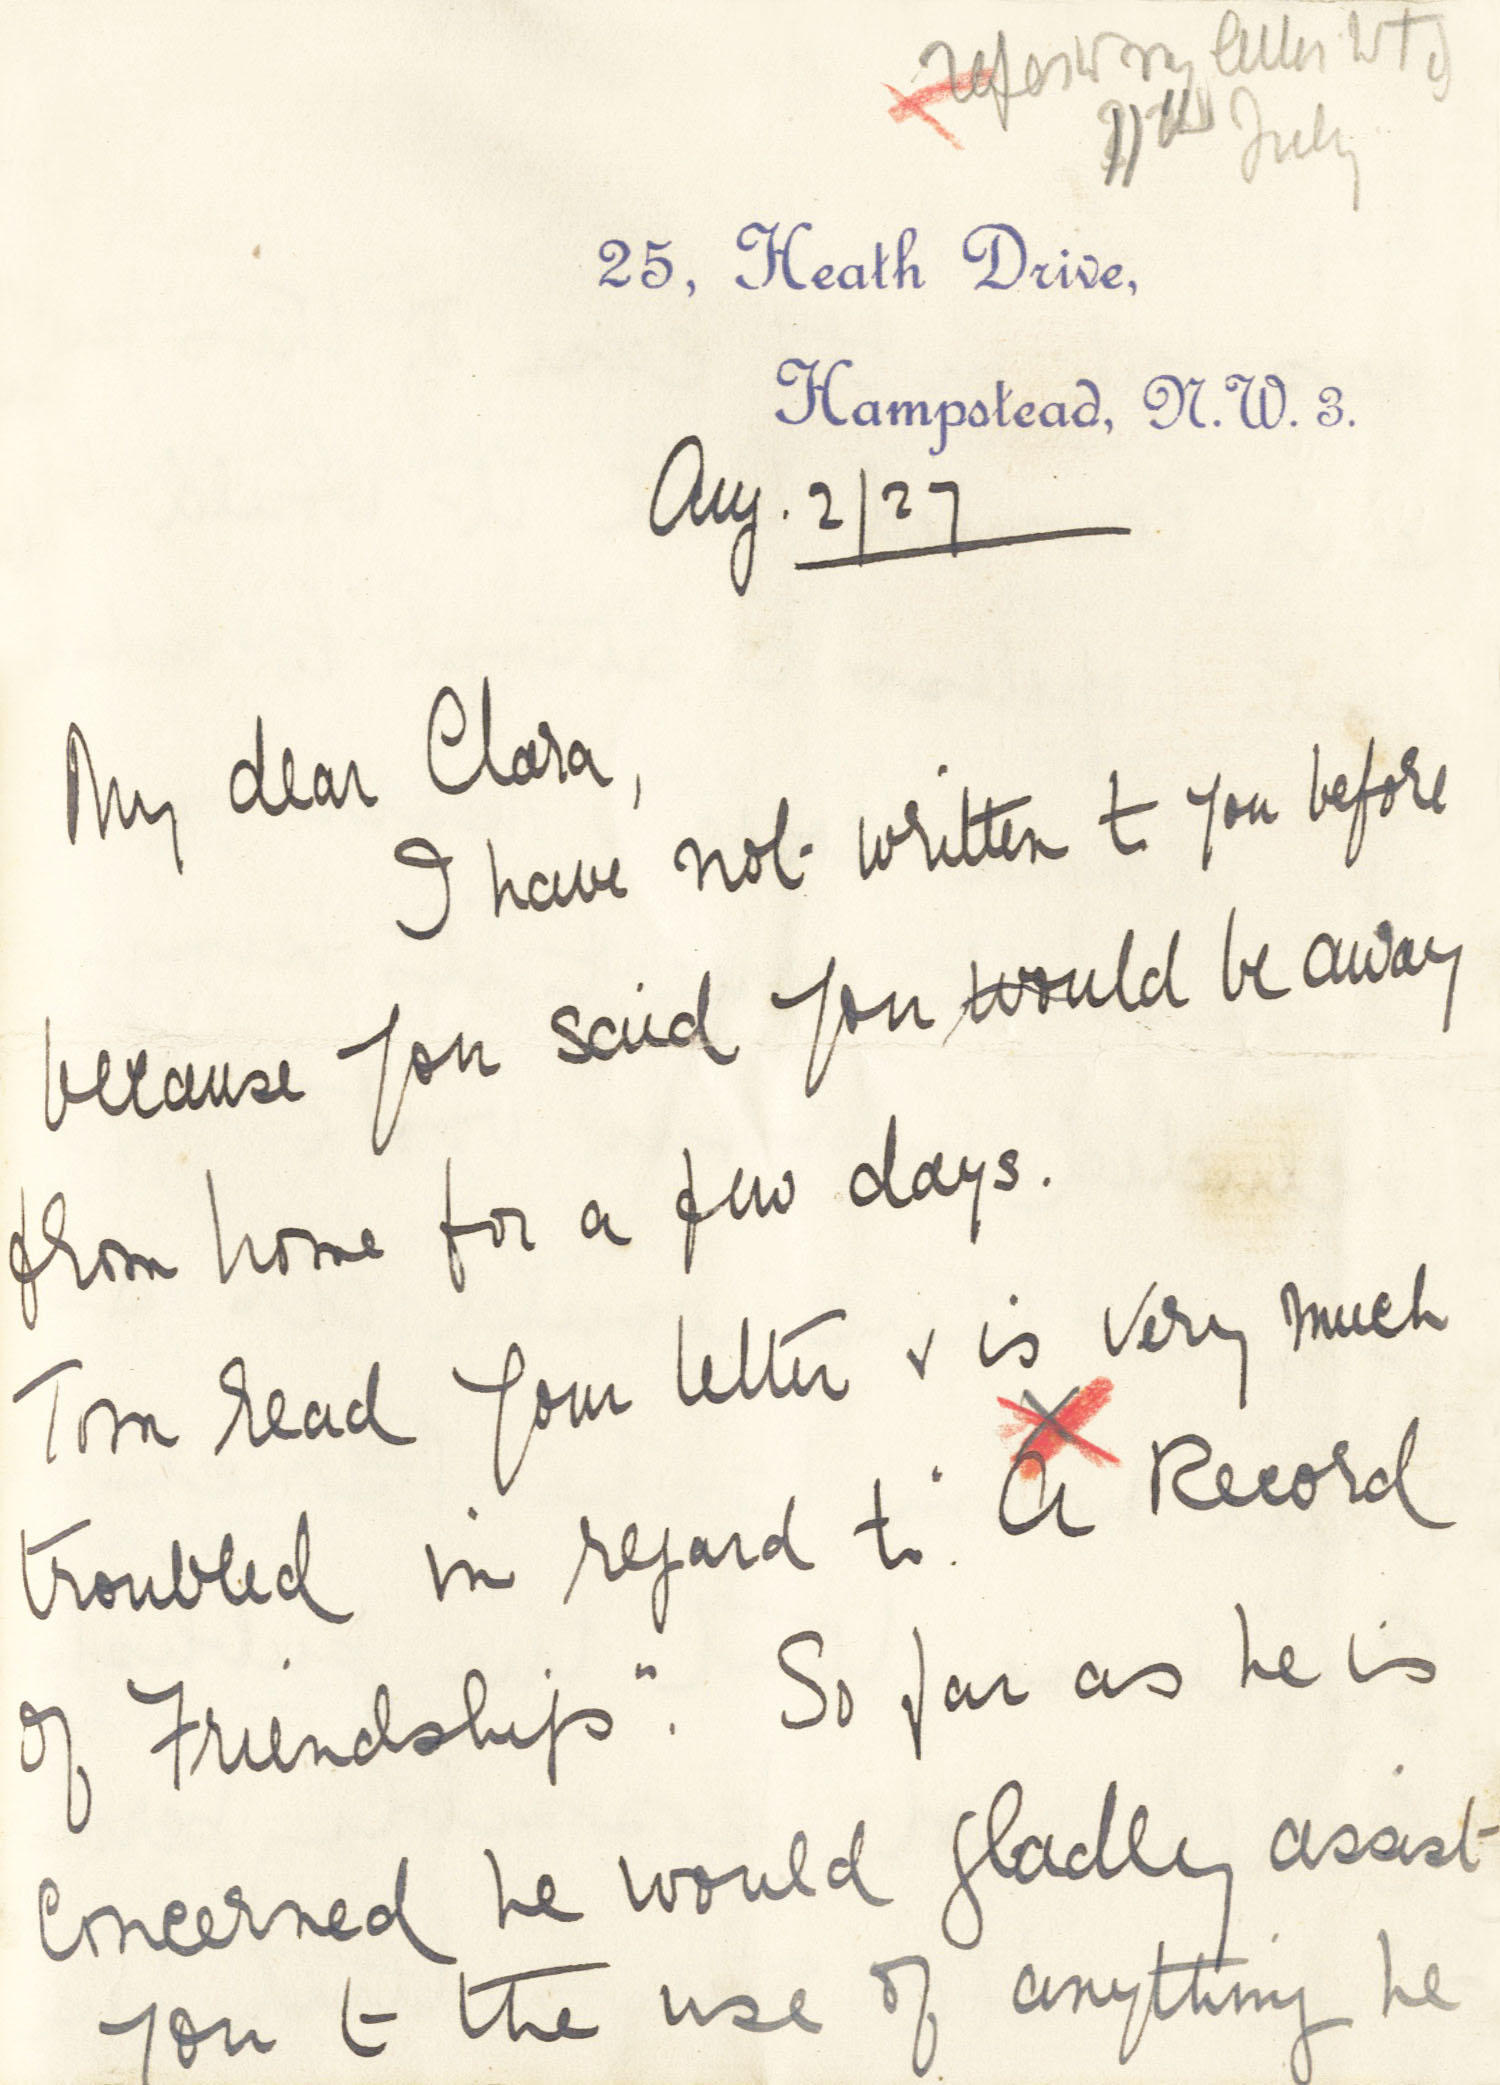 my letter
July
25, Heath Drive,
Hampstead, N.W. 3.
Aug. 2/27
My dear Clara,
I have not written to you before
because you said you would be away
from home for a few days.
Tom read your letter & is very much
troubled in regard to "A Record
of Friendships". So far as he is
concerned he would gladly assist
you to the use of anything he